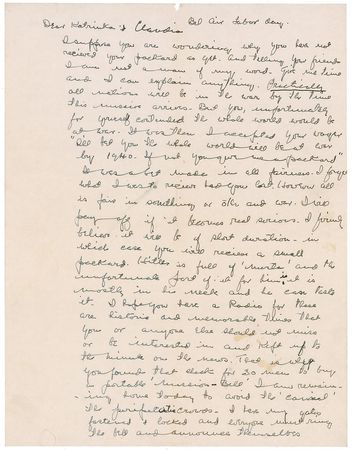 Dear Katrinka & Claudia Bel Air Labor day.
I suppose you are wondering why you have not
recieved your packard as yet. and telling your friends
I am not a man of my word. Give me time
and I can explain anything. Practically
all nations will be in the war by the time
this missive arrives. But you, unfortunately
for yourself contended the whole world would be
at war. It was then I accepted your wager
"I'll bet you the whole world will be at war
by 1940. If not you give me a packard"
It was a bet made in all fairness. I forget
what I was to recieve had you lost. However all
is fair in something or other and war. I will
pay off if it becomes real serious. I firmly
believe it will be of short duration - in
which case you will recieve a small
packard. Hitler is full of and the
unfortunate part of it for him is it is
mostly in his neck and he can taste
it. I hope you have a Radio for these
are historic and memorable times that
you or anyone else should not miss
or be interested in and kept up to
the minute on the news. That is why
you found that check for 20 menu to buy
a portable mission-Bell. I am remain-
ing home today to avoid the
the crowds. I have my gates
fastened & locked and everyone must ring
the bell and announce themselves